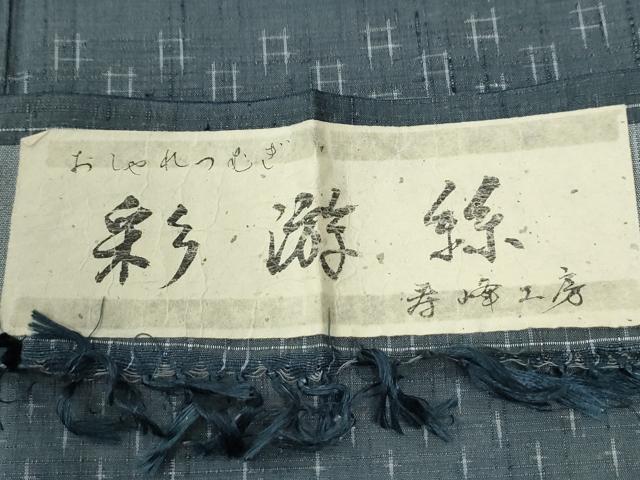 おしゃれつむぎ
彩游絲
寿峰工房